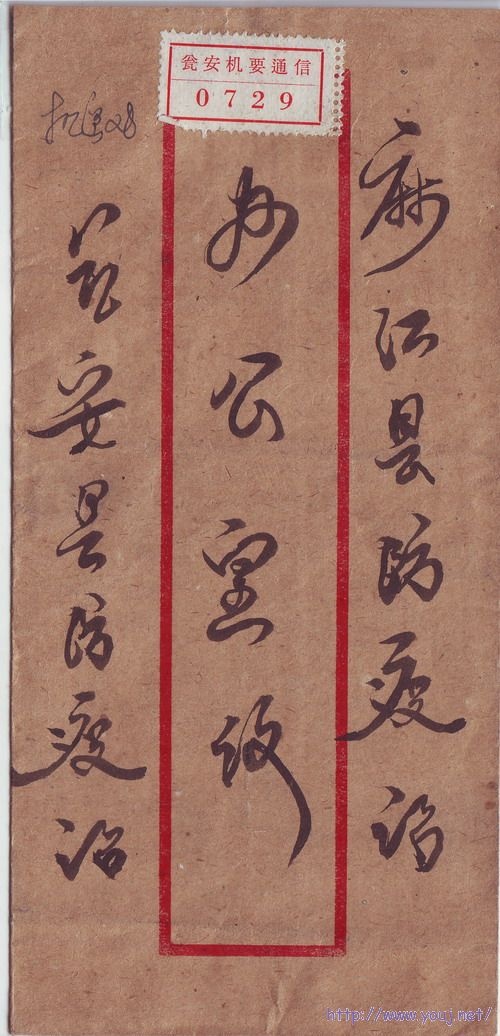 瓮安机要通信
0729
麻江县防疫站
办公室收
瓮安县防疫站
http://www.youj.net/